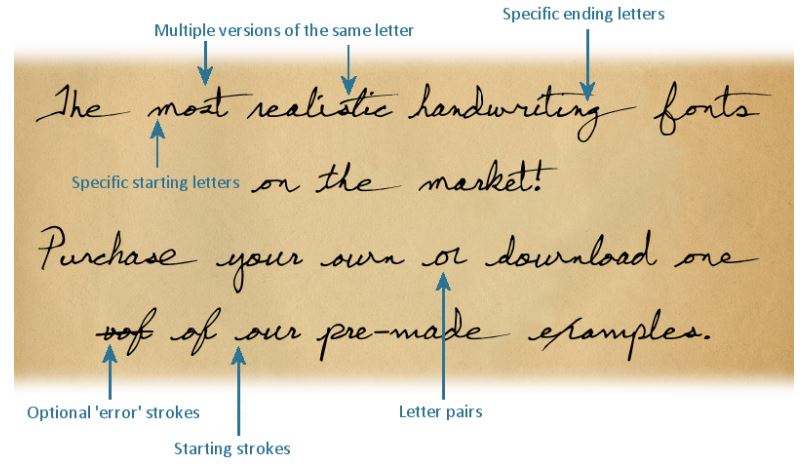 Specific ending letters
Multiple versions of the same letter
The most realistic handwriting fonts
Specific starting letters
on the market!
Purchase your own or download one
oof of our pre-made examples.
Optional 'error' strokes
Letter pairs
Starting strokes